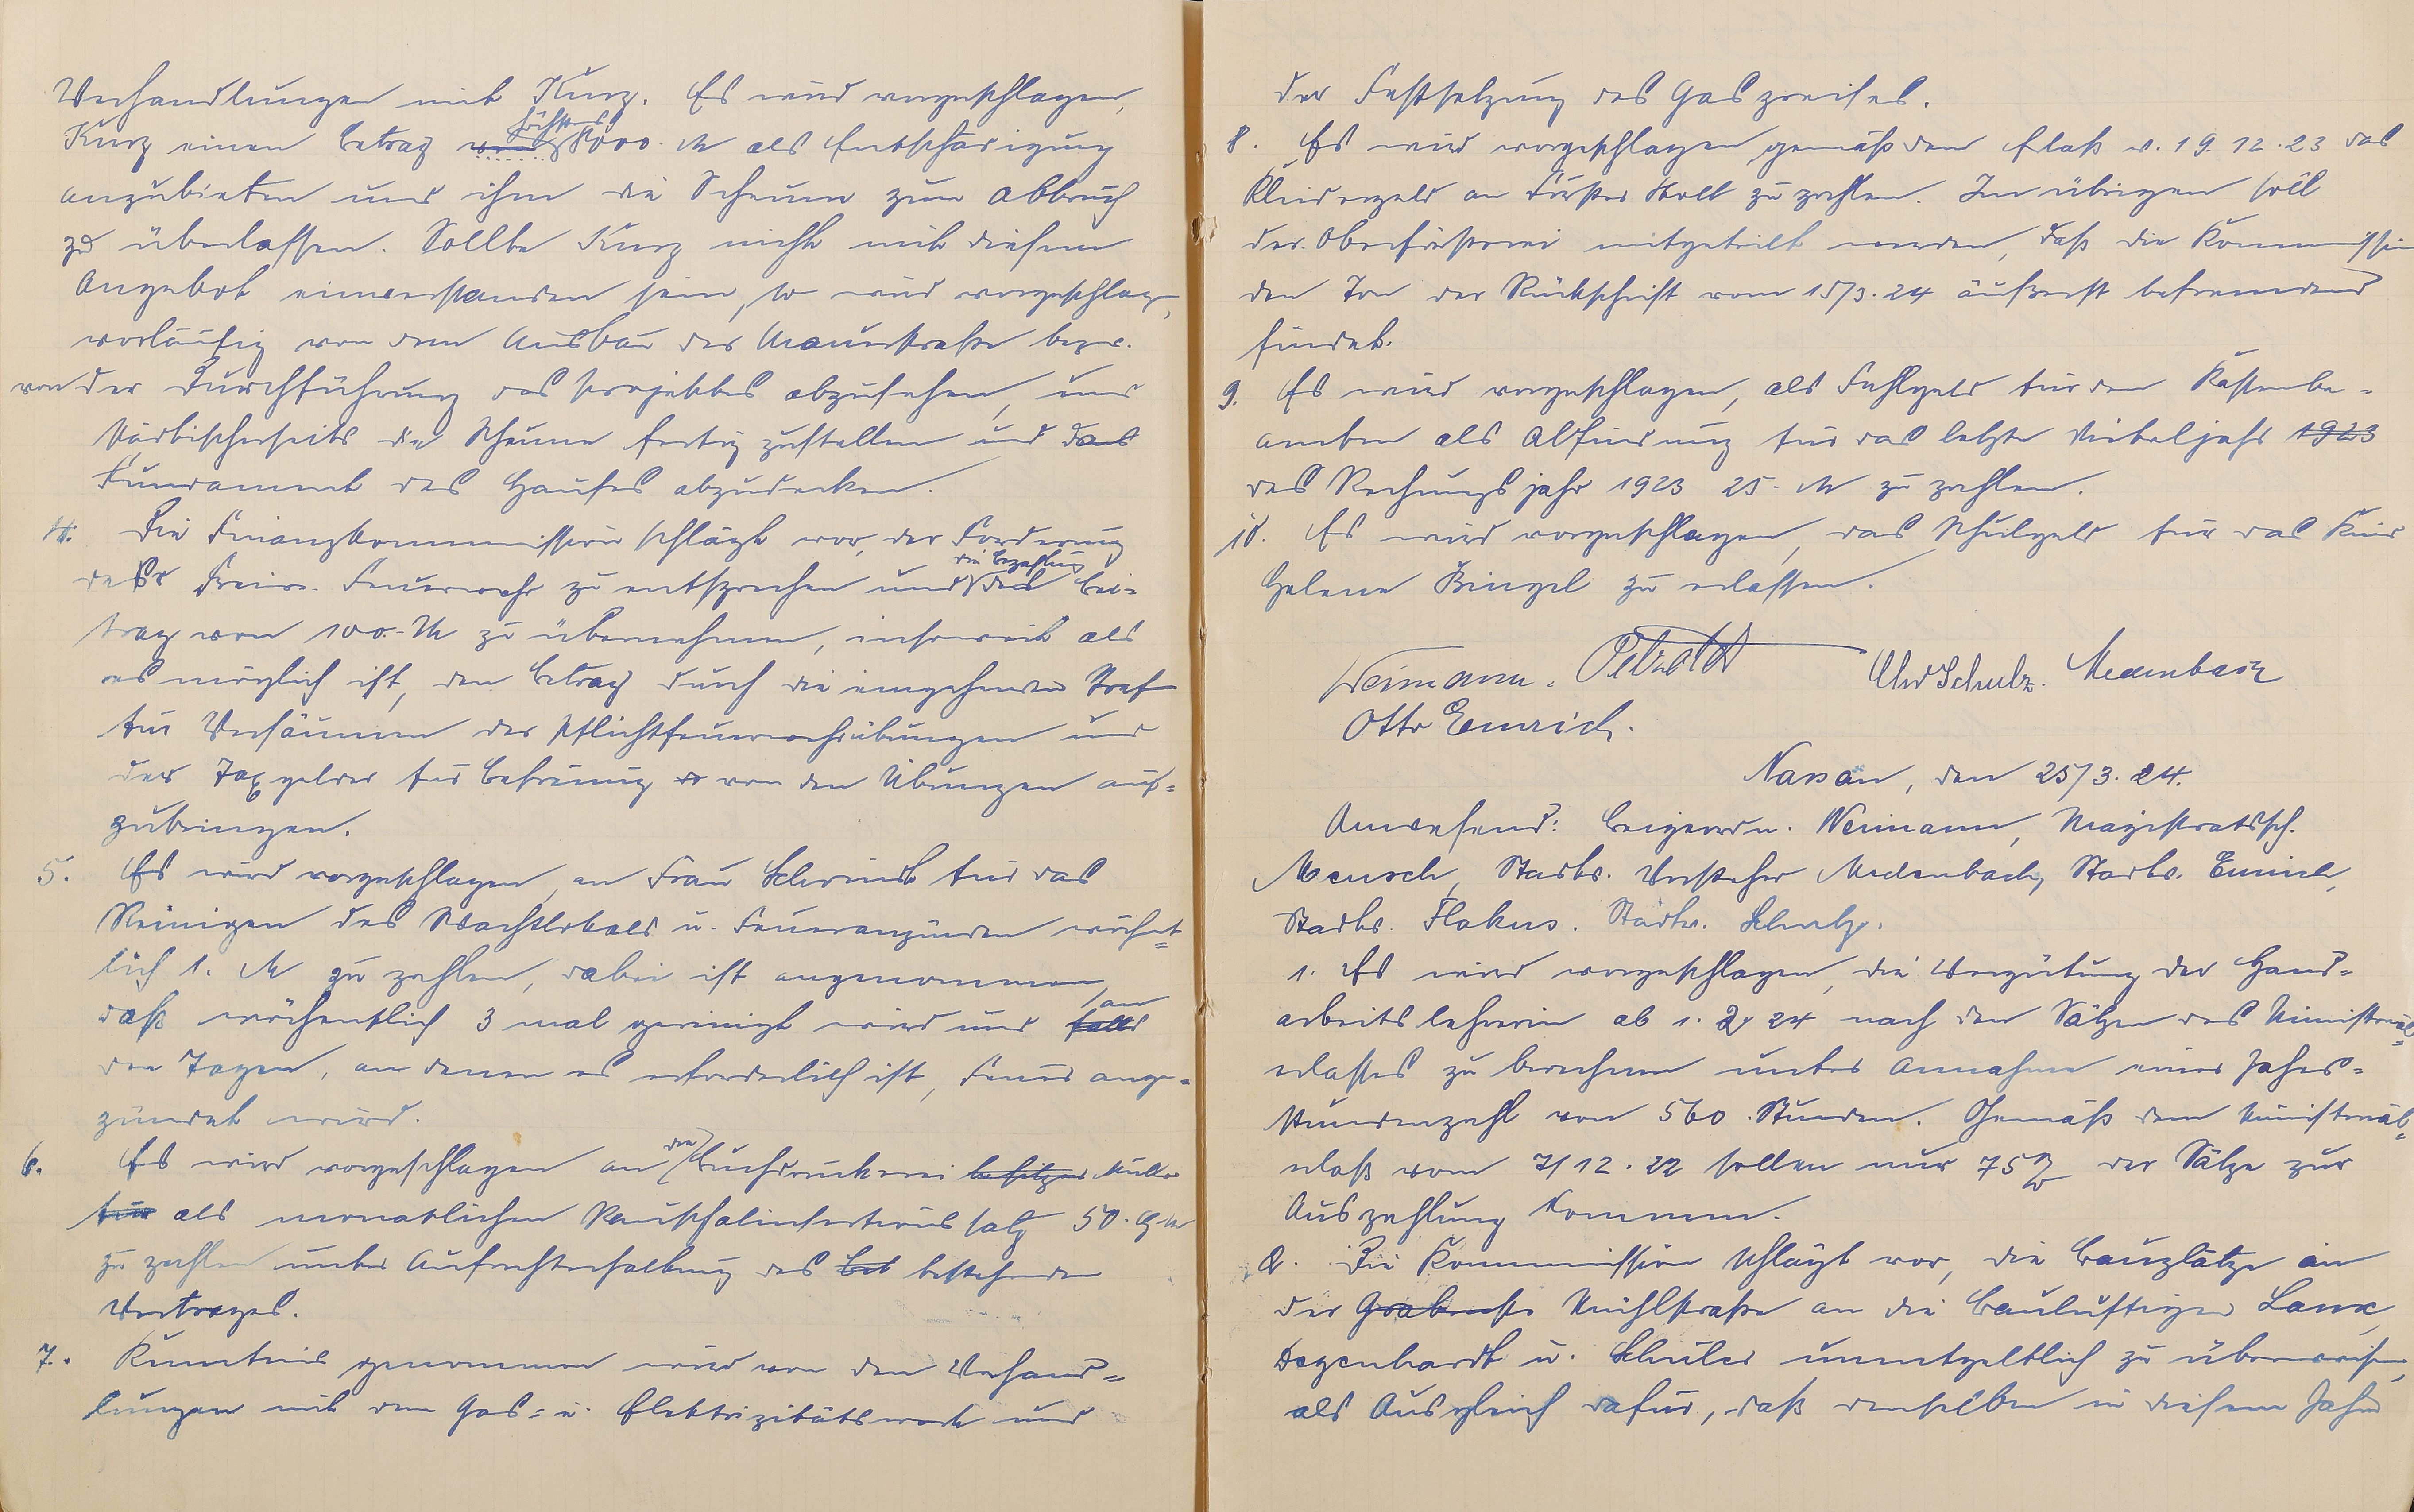 Verhandlungen mit Kurz. Es wird vorgeschlagen,
Kurz einen Betrag von höchstens 8000. M als Entschädigung
anzubieten und ihm die Scheune zum Abbruch
zu überlassen. Sollte Kurz nicht mit diesem
Angebot einverstanden sein, so wird vorgeschlagen,
vorläufig von dem Ausbau der Mauerstraße bezw.
von der Durchführung des Projektes abzusehen, und
städtischerseits die Scheune fertig zustellen und das
Fundament des Hauses abzudecken.
4. Die Finanzkommission schlägt vor, der Forderung
der Freiw. Feuerwehr zu entsprechen und die Bezahlung den Bei-
trag von 100.- M zu übernehmen, insoweit als
es möglich ist, den Betrag durch die eingehenden Straf
für Versäumen der Pflichtfeuerwehrübungen und
der Taxgelder für Befreiung von den Übungen auf-
zubringen.
5. Es wird vorgeschlagen, an Frau Schwindt für das
Reinigen des Wachtlokals u. Feueranzünden wöchent-
lich 1. M zu zahlen, dabei ist angenommen,
daß wöchentlich 3 mal gereinigt wird und falls an
den Tagen, an denen es erforderlich ist, Feuer ange-
zündet wird.
6. Es wird vorgeschlagen an die Buchdruckerei besitzer Müller
für als monatlichen Pauschalinsertionssatz 50. G M
zu zahlen unter Aufrechterhaltung des bet bestehenden
Vertrages.
7. Kenntnis genommen wird von den Verhand-
lungen mit dem Gas- u. Elektrizitätswerk und
der Festsetzung des Gaspreises.
8. Es wird vorgeschlagen gemäß dem Erlaß v. 19.12.23 das
Kleidergeld an Förster Stoll zu zahlen. Im übrigen soll
der Oberförsterei mitgeteilt werden, daß die Kommission
den Ton der Rückschrift vom 15/3.24 äußerst befremdend
findet.
9. Es wird vorgeschlagen, als Fehlgeld für den Kassenbe-
amten als Abfindung für das letzte Vierteljahr 1923
des Rechnungsjahr 1923 25.- M zu zahlen.
10. Es wird vorgeschlagen, das Schulgeld für das Kind
Helene Bingel zu erlassen.
Weimann. Chr Schulz. Medenbach
Otto Emrich.
Nassau, den 25/3.24.
Anwesend: Beigeordn. Weimann, Magistratssch.
Mensch, Stadtv. Vorsteher Medenbach, Stadtv. Emrich,
Stadtv. Flokus. Stadtv. Schulz.
1. Es wird vorgeschlagen, die Vergütung der Hand-
arbeitslehrerin ab 1. 2. 24 nach den Sätzen des Ministerial-
erlasses zu berechnen unter Annahme einer Jahres-
stundenzahl von 560 Stunden. Gemäß dem Ministerial-
erlaß vom 7/12.22 sollen nur 75 % der Sätze zur
Auszahlung kommen.
2. Die Kommission schlägt vor, die Bauplätze an
der Grabenstr Mühlstraße an die Baulustigen Lanx,
Degenhardt u. Schuler unentgeltlich zu überweisen,
als Ausgleich dafür, daß denselben in diesem Jahre